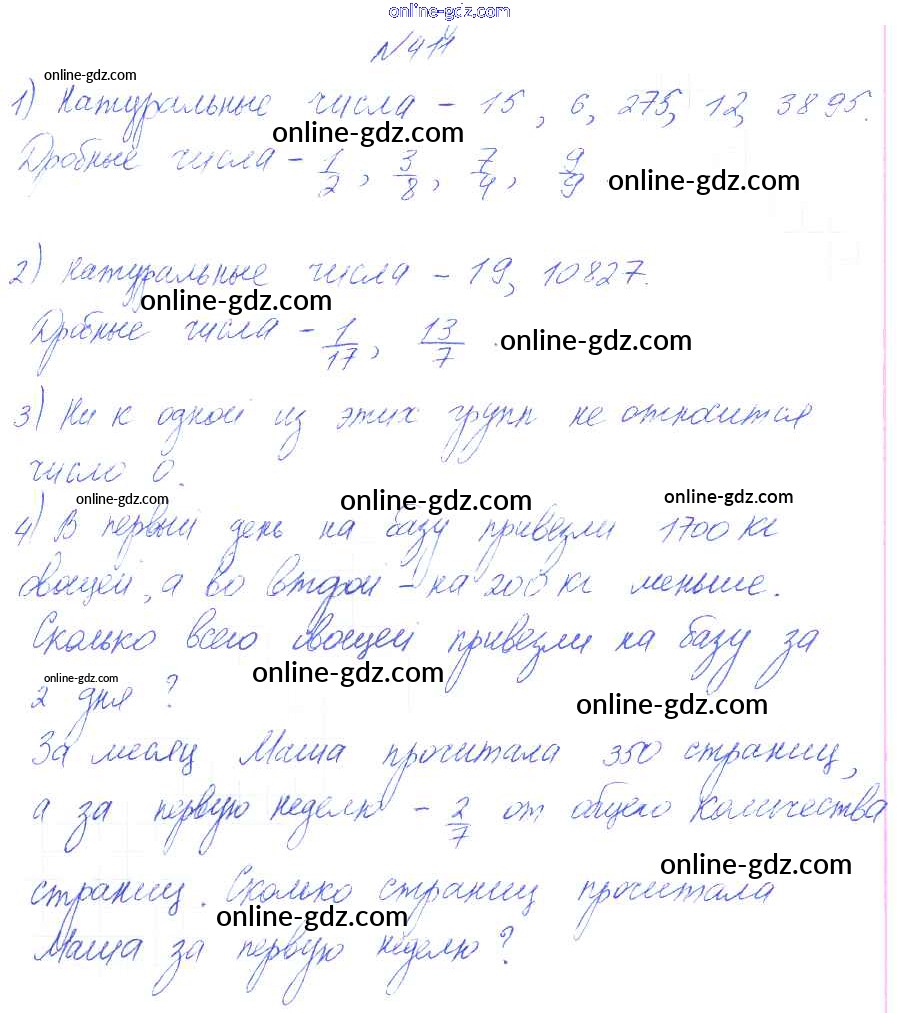 online-gdz.com
№411
online-gdz.com
1) Натуральные числа - 15, 6, 275, 12, 3895.
online-gdz.com
Дробные числа - 1/2, 3/8, 7/4, 9/9.
online-gdz.com
2) Натуральные числа - 19, 10827.
online-gdz.com
Дробные числа - 1/17, 13/7.
online-gdz.com
3) Ни к одной из этих групп не относится
число 0.
online-gdz.com
online-gdz.com
online-gdz.com
4) В первый день на базу привезли 1700 кг
овощей, а во второй - на 200 кг меньше.
Сколько всего овощей привезли на базу за
online-gdz.com
online-gdz.com
2 дня?
online-gdz.com
За месяц Маша прочитала 350 страниц,
а за первую неделю - 2/7 от общего количества
online-gdz.com
страниц. Сколько страниц прочитала
online-gdz.com
Маша за первую неделю?